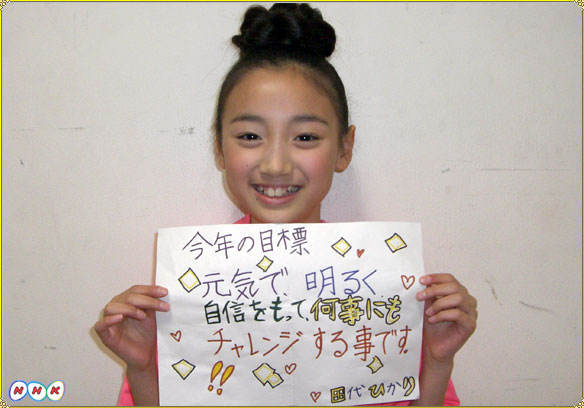 今年の目標
元気で、明るく、
自信をもって、何事にも
チャレンジする事です。
!!
田代ひかり
NHK